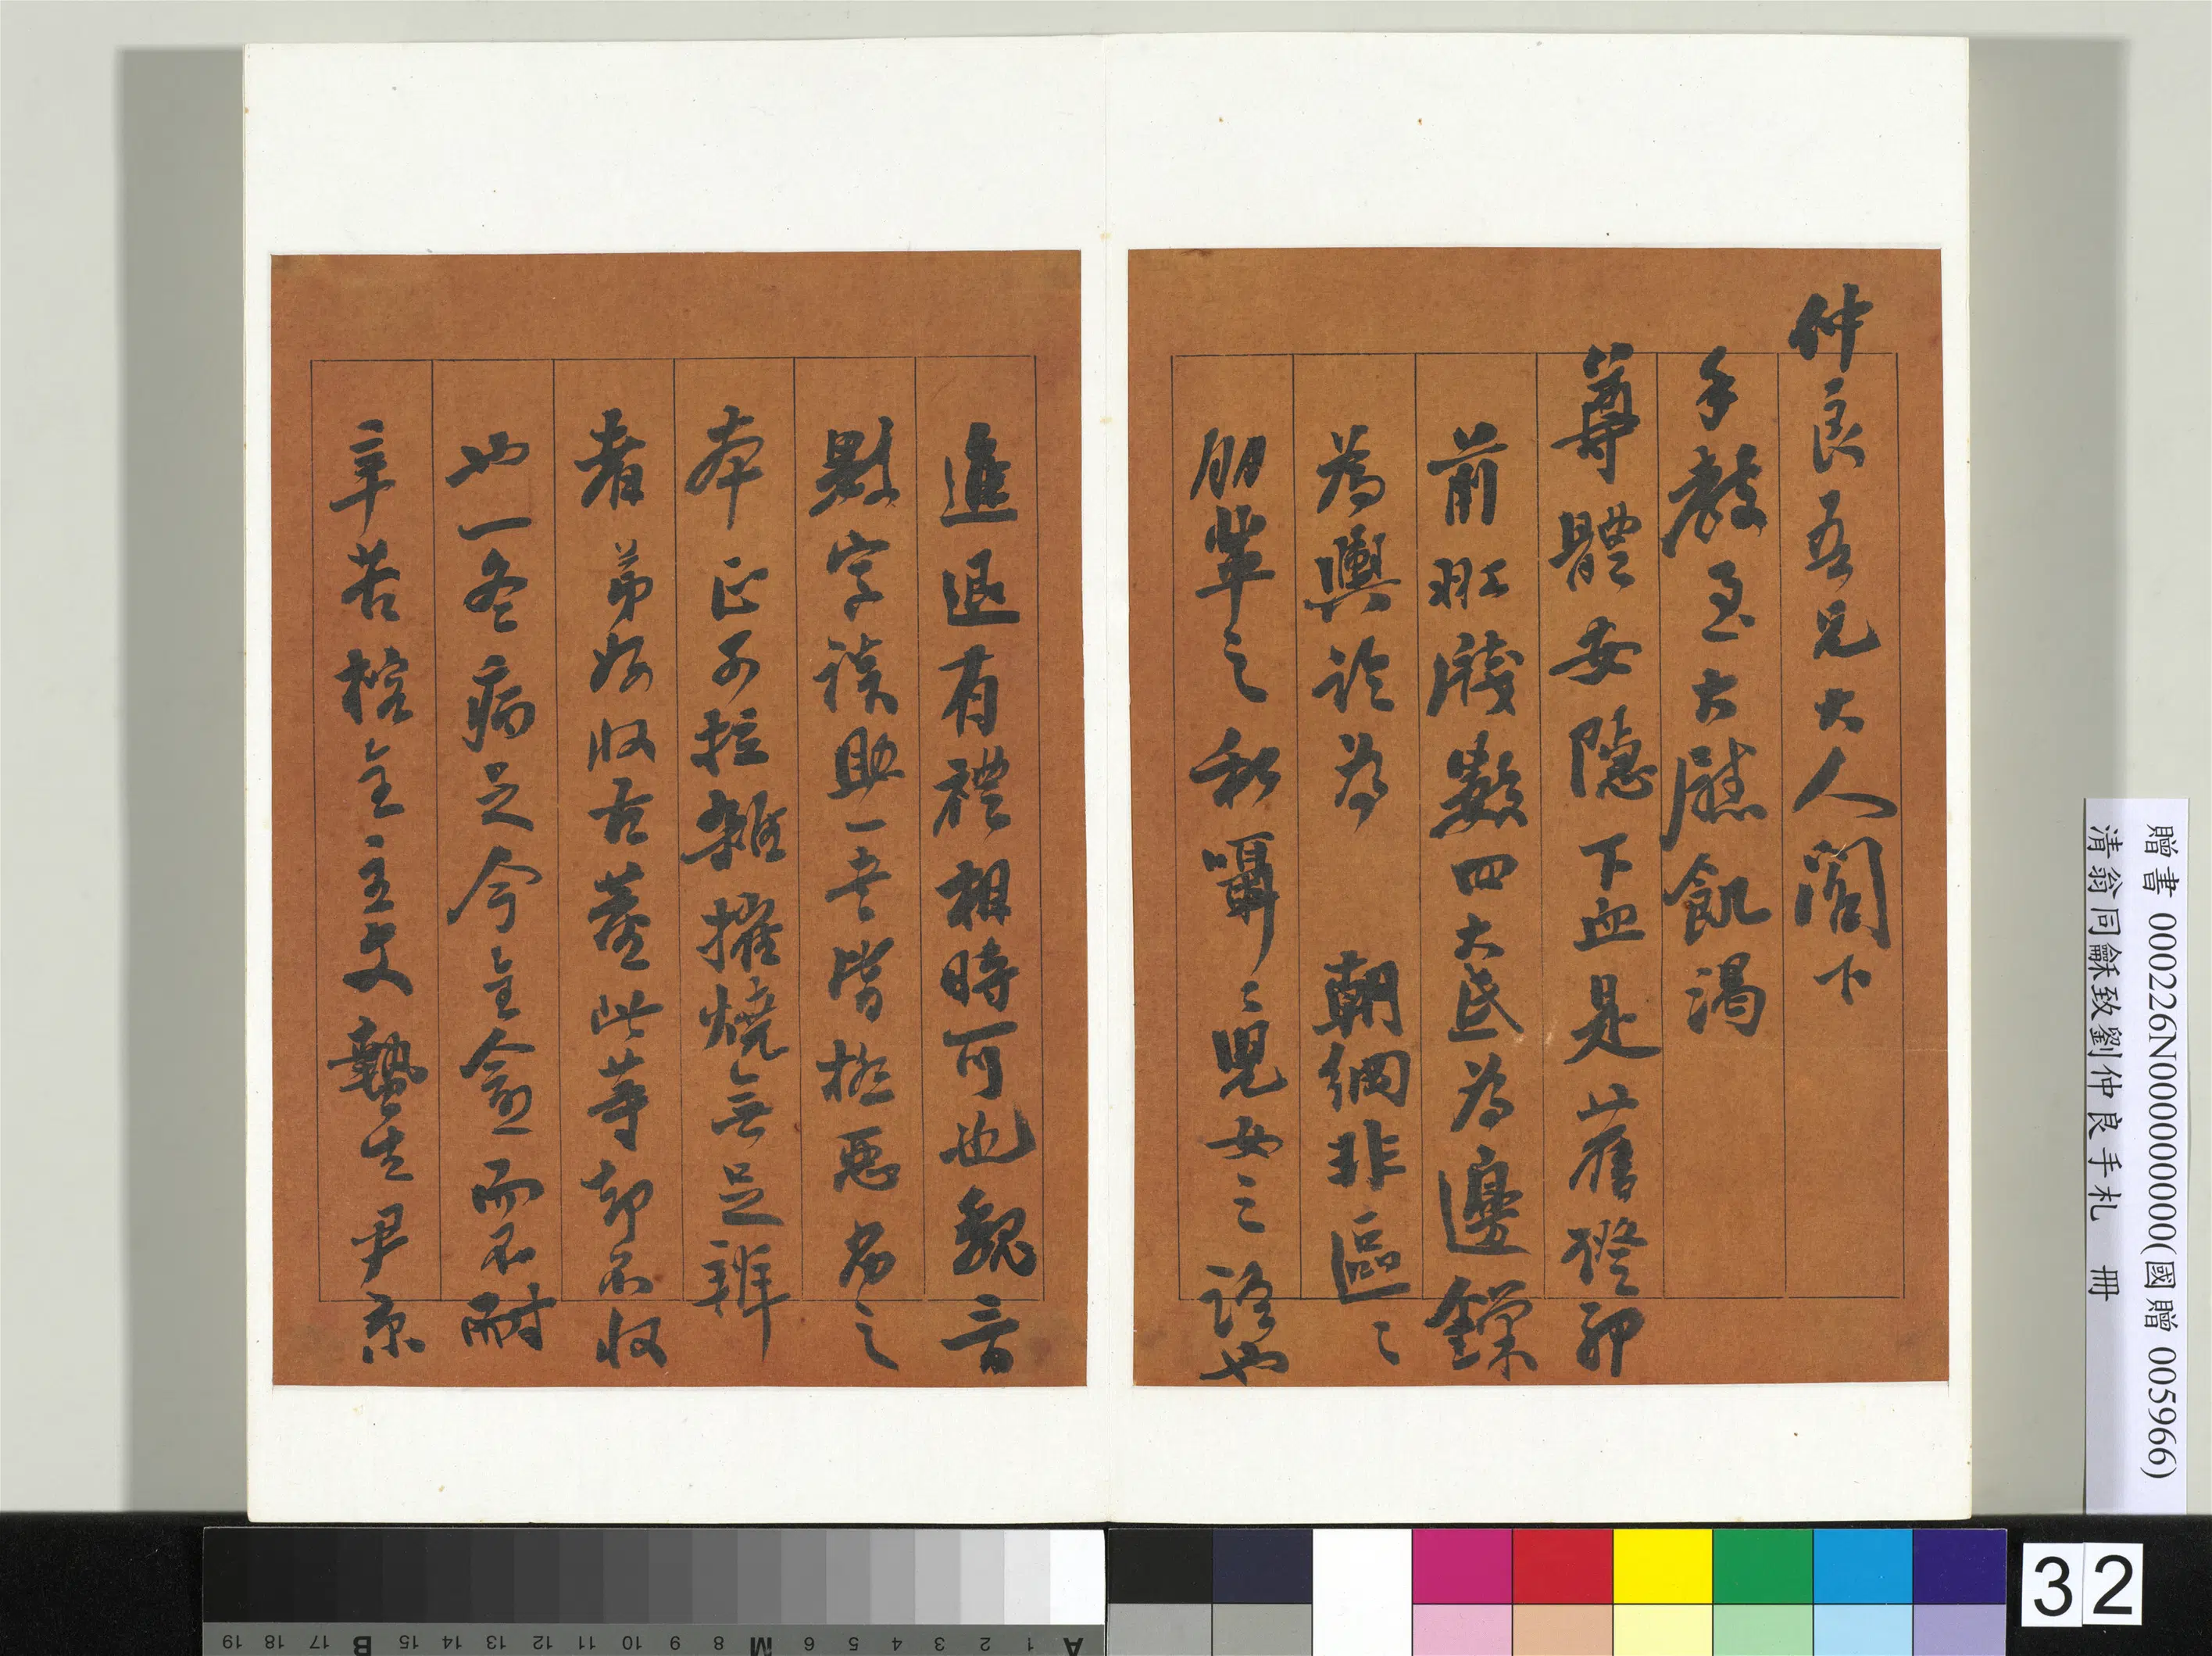 仲良吾兄大人閣下
手教至大慰飢渴
尊體安隱下血是舊證卯
前肛腸數四大益為邊鏁
為輿論為 朝綱非區〻
朋輩之私囁〻兒女之語也
進退有禮相時可也魏言
數字談助一夫皆極惡為之
本正不拉雜摧燒無足辨
者弟好收古董此等却不收
也一冬病足今全愈而不耐
辛苦 全主文 生尹京
贈書 000226N000000000(國贈 005966)
清翁同龢致劉仲良手札 冊
32
A 1 2 3 4 5 6 M 8 9 10 11 12 13 14 15 B 17 18 19